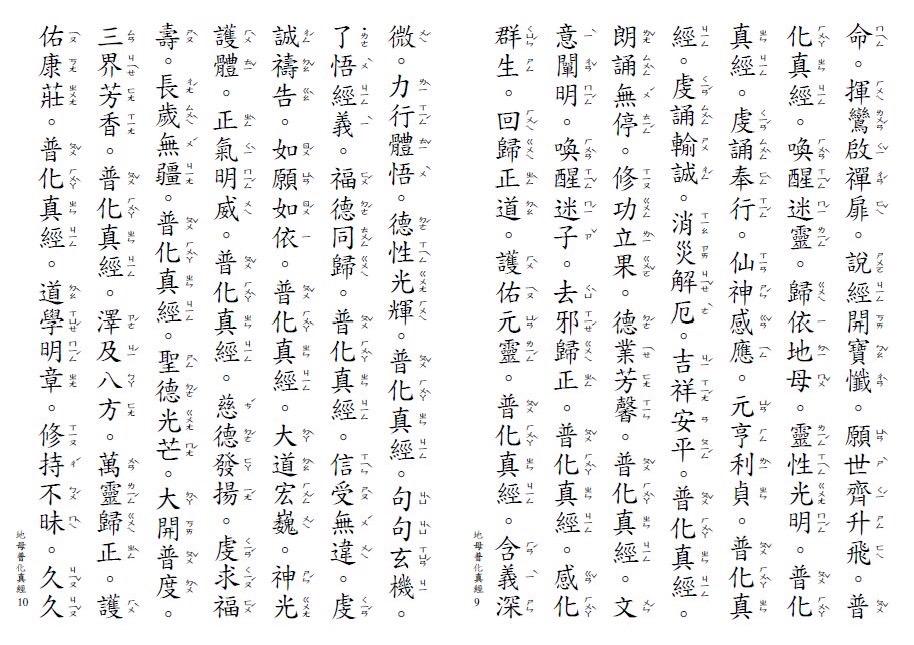 命。揮鸞啟禪扉。說經開寶懺。願世齊升飛。普
化真經。喚醒迷靈。歸依地母。靈性光明。普化
真經。虔誦奉行。仙神感應。元亨利貞。普化真
經。虔誦輸誠。消災解厄。吉祥安平。普化真經。
朗誦無停。修功立果。德業芳馨。普化真經。文
意闡明。喚醒迷子。去邪歸正。普化真經。感化
群生。回歸正道。護佑元靈。普化真經。含義深
地母普化真經 9
微。力行體悟。德性光輝。普化真經。句句玄機。
了悟經義。福德同歸。普化真經。信受無違。虔
誠禱告。如願如依。普化真經。大道宏巍。神光
護體。正氣明威。普化真經。慈德發揚。虔求福
壽。長歲無疆。普化真經。聖德光芒。大開普度。
三界芳香。普化真經。澤及八方。萬靈歸正。護
佑康莊。普化真經。道學明章。修持不昧。久久
地母普化真經 10